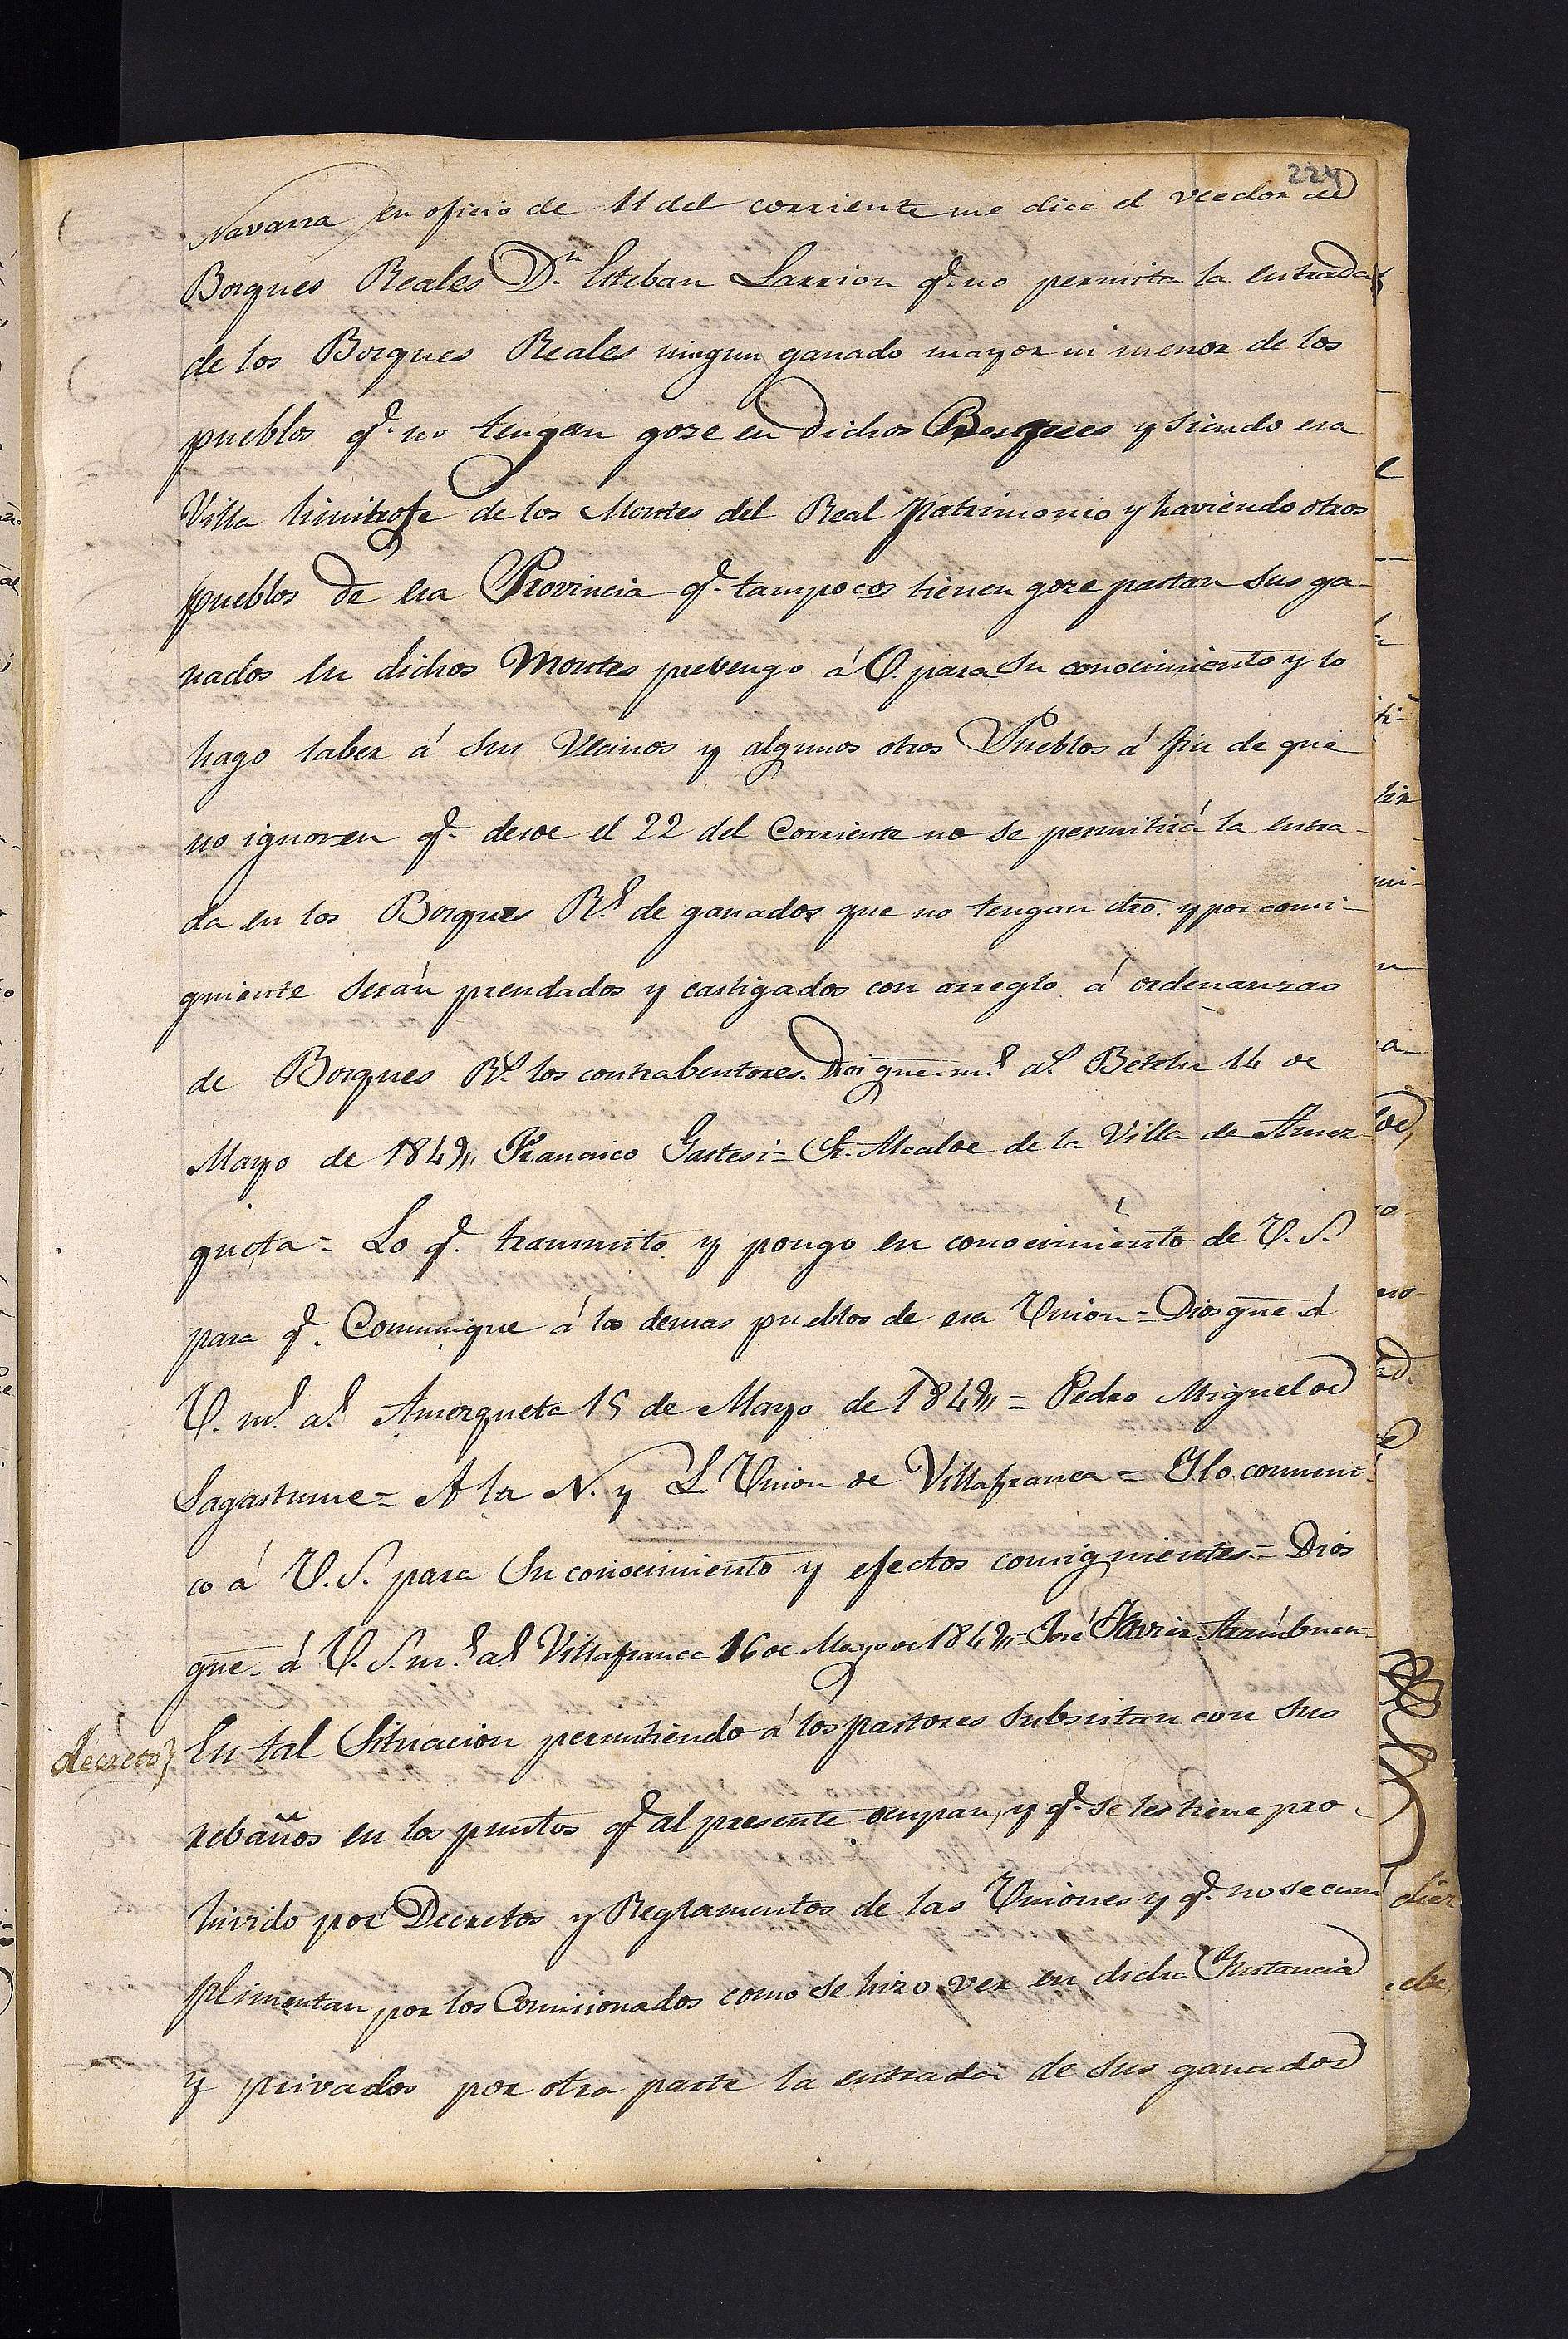 224
Navarra en oficio de 11 del corriente me dice el veedor de
Bosques Reales Dn. Esteban Larrion q.e no permita la entrada
de los Bosques Reales ningun ganado mayor ni menor de los
pueblos q.e no tengan goze en dichos Bosques y siendo esa
Villa limitrofe de los Montes del Real Patrimonio y haviendo otros
pueblos de esa Provincia q.e tampocos tienen goze pastan sus ga-
nados en dichos Montes prebengo á V. para su conocimiento y lo
hago saber á sus Vecinos y algunos otros Pueblos á fin de que
no ignoren q.e desde el 22 del Corriente no se permitirá la entra-
da en los Bosques R.s de ganados que no tengan dro. y por consi-
guiente serán prendados y castigados con arreglo á ordenanzas
de Bosques R.s los contrabentores. Dios gue. m.s a.s Betelu 14 de
Mayo de 1849,, Francisco Gastesi = Sr. Alcalde de la Villa de Amez-
queta = Lo q.e transmito y pongo en conocimiento de V.S.
para q.e Comunique á los demas pueblos de esa Union = Dios gue á
V. m.s a.s Amezqueta 15 de Mayo de 1849,, = Pedro Miguel de
Sagastume = A la N. y L. Union de Villafranca = Y lo comuni-
co á V.S. para su conocimiento y efectos consiguientes = Dios
gue. á V.S. m.s a.s Villafranca 16 de Mayo de 1849,, = José Xavier Arámburu =
decreto} En tal Situacion permitiendo á los pastores subsistan con sus
rebaños en los puntos q.e al presente ocupan, y q.e se les tiene pro-
hivido por Decretos y Reglamentos de las Uniones y q.e no se cum
plimentan por los Comisionados como se hizo ver en dicha Instancia
y privados por otra parte la entrada de sus ganados